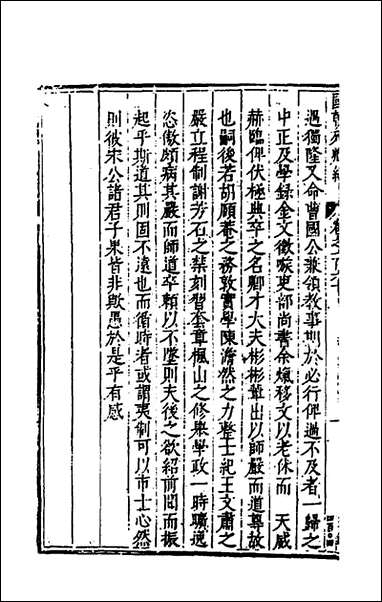 國朝列卿紀 卷之一百
遇獨隆又命曹國公兼領教事期於必行俾過不及者一歸之
中正及學録金文徵嗾吏部尚書余熂移文以老休而　天威
赫臨俾伏極典卒之名卿才大夫彬彬輩出以師嚴而道尊故
也嗣後若胡頤菴之務敦實學陳澹然之力整士紀王文肅之
嚴立程制謝芳石之禁刻習套章楓山之修舉學政一時曠逸
恣傲頗病其嚴而師道卒頼以不墜則夫後之欲紹前聞而振
起乎斯道其則固不遠也而循時者或謂夷制可以市士心然
則彼宋公諸君子果皆非歟愚於是乎有感